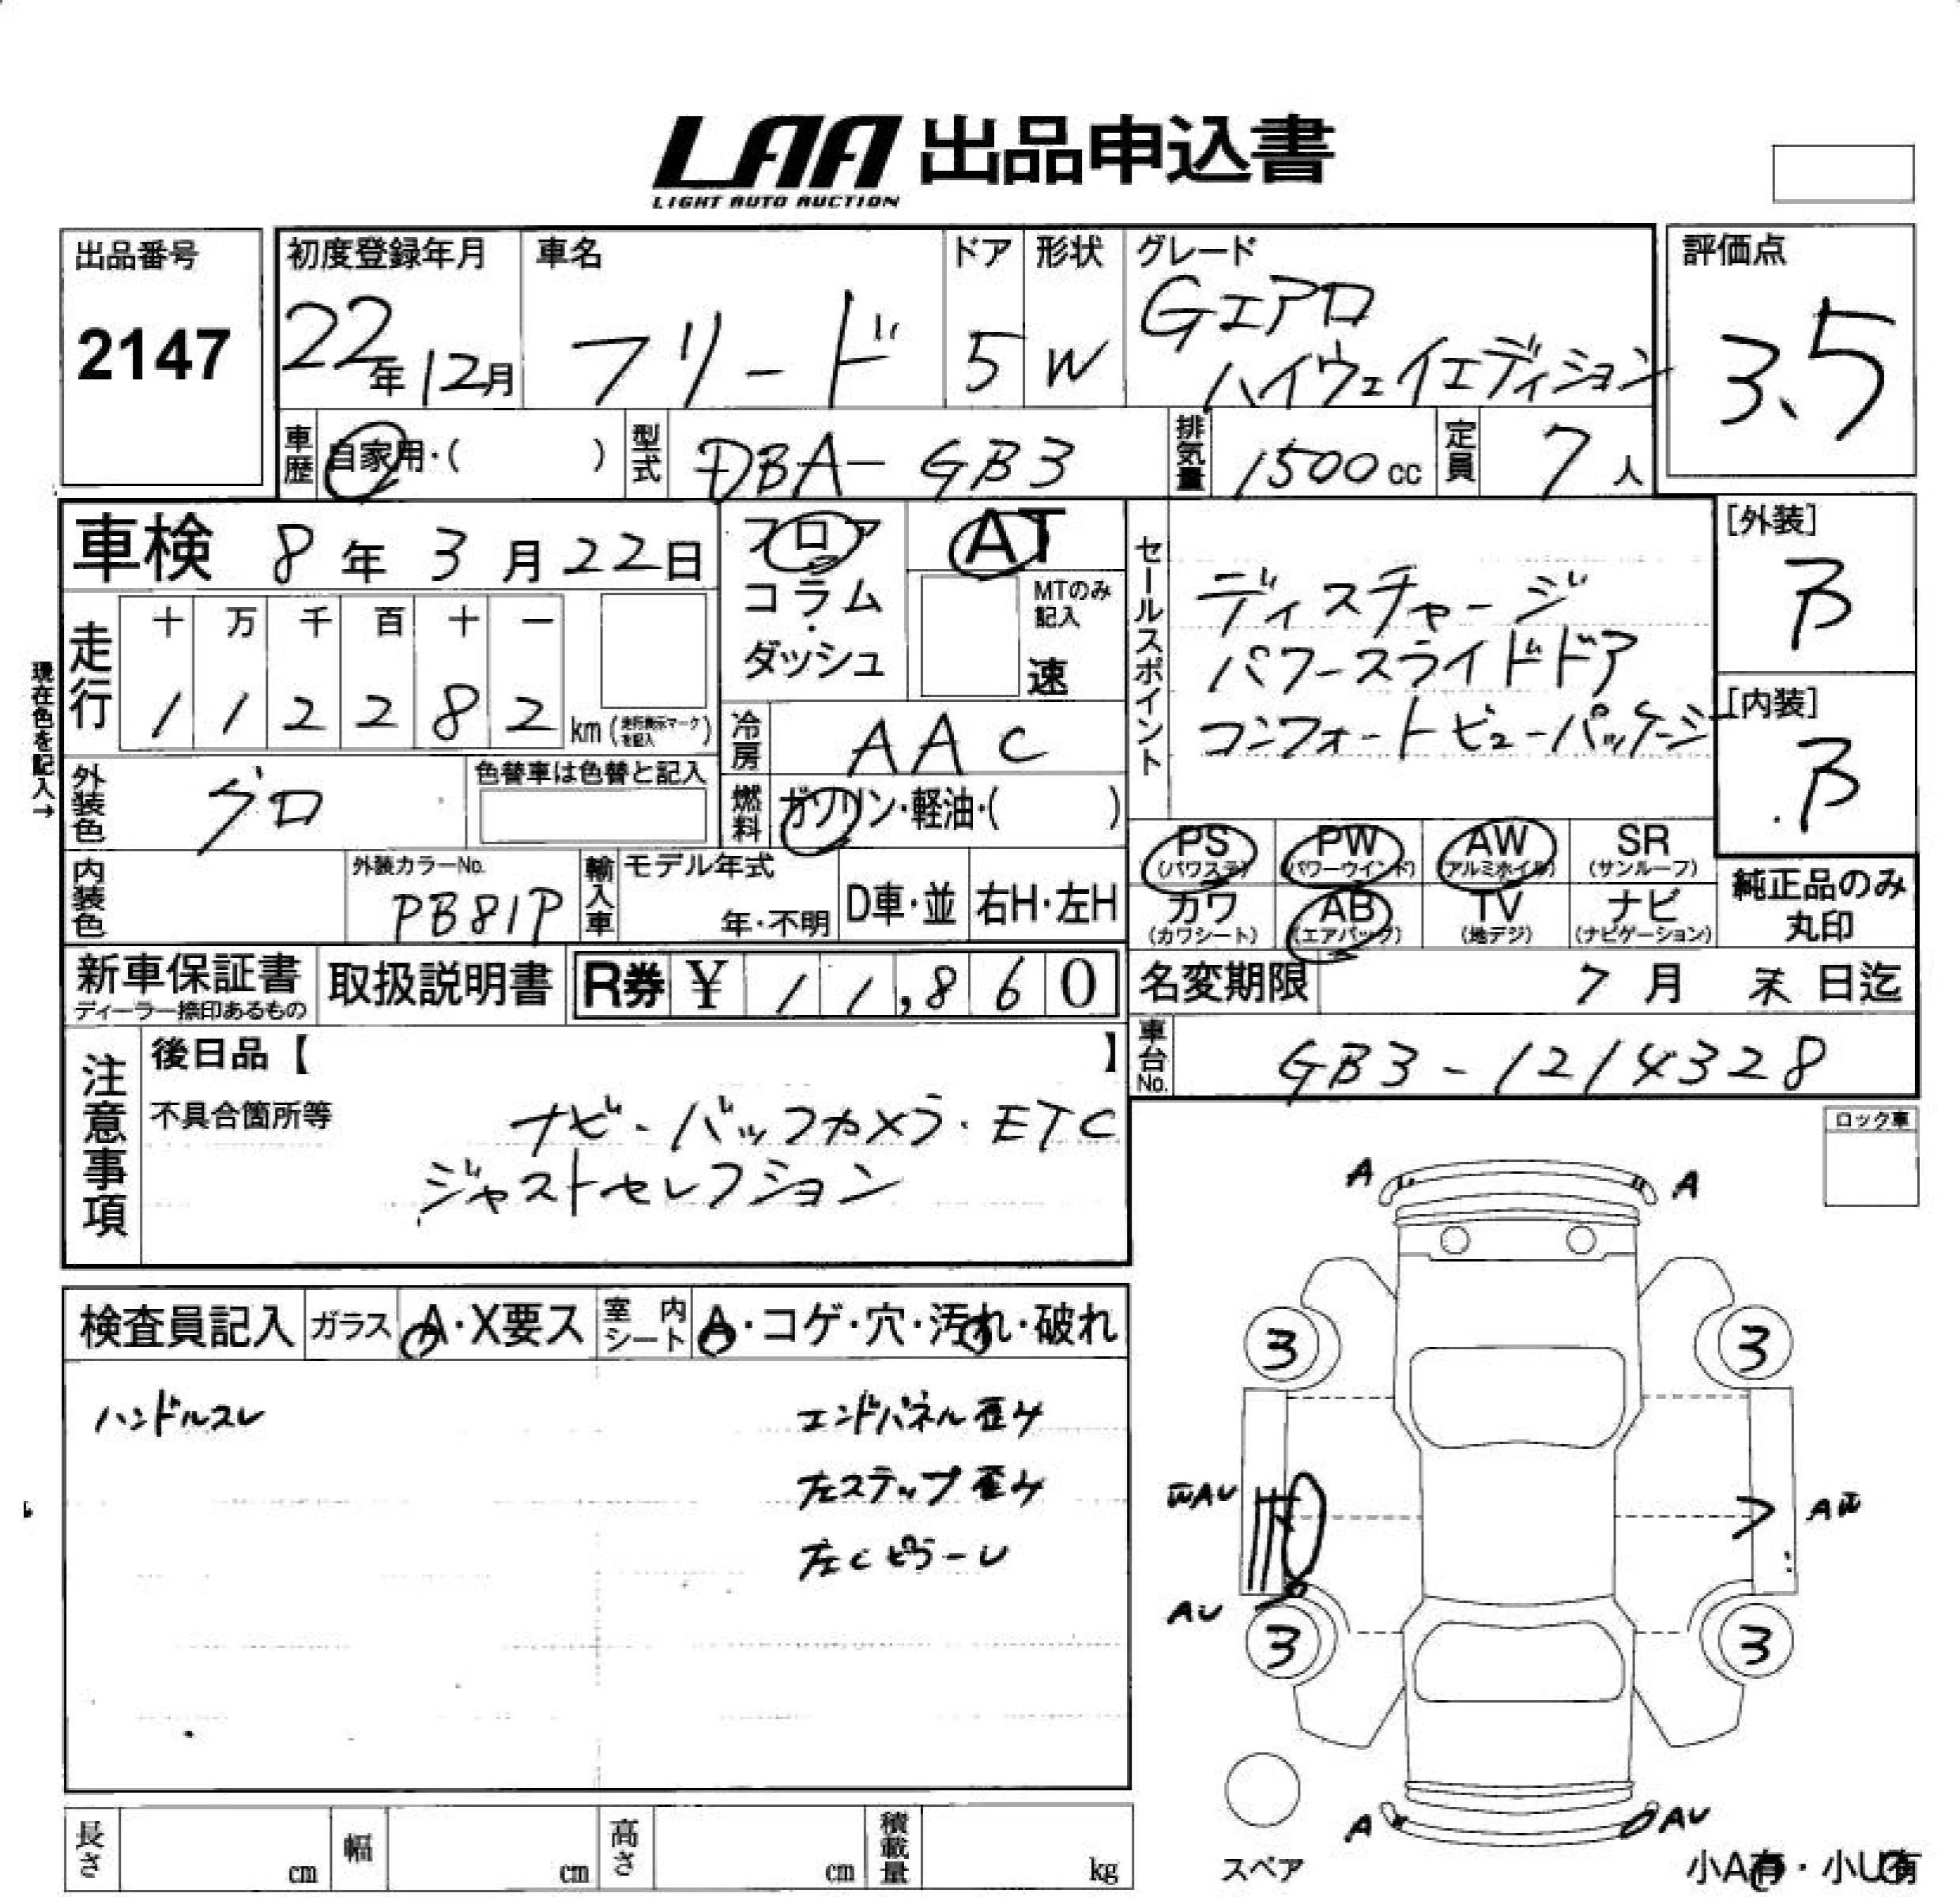 LAA 出品申込書
LIGHT AUTO AUCTION
出品番号
2147
初度登録年月
22年12月
車名
フリード
ドア
5
形状
W
グレード
Gエアロ
ハイウェイエディション
評価点
3.5
車歴
自家用・( )
型式
DBA-GB3
排気量
1500cc
定員
7人
車検 8年3月22日
走行
十 万 千 百 十 一
1 1 2 2 8 2 km (走行表示マークを記入)
現在色を記入→
フロア
コラム
・
ダッシュ
AT
MTのみ
記入
速
冷房
AAC
燃料
ガソリン・軽油・( )
外装色
グロ
色替車は色替と記入
内装色
外装カラーNo.
PB81P
輸入車
モデル年式
年・不明
D車・並
右H・左H
セールスポイント
ディスチャージ
パワースライドドア
コンフォートビューパッケージ
[外装]
B
[内装]
B
PS
(パワステ)
PW
(パワーウインド)
AW
(アルミホイル)
SR
(サンルーフ)
カワ
(カワシート)
AB
(エアバッグ)
TV
(地デジ)
ナビ
(ナビゲーション)
純正品のみ
丸印
新車保証書
ディーラー捺印あるもの
取扱説明書
R券 ¥ 11,860
名変期限 7月 末日迄
車台No.
GB3-1214328
注意事項
後日品【 】
不具合箇所等
ナビ・バックカメラ・ETC
ジャストセレクション
ロック車
検査員記入
ガラス
A・X要ス
室内シート
A・コゲ・穴・汚れ・破れ
ハンドルスレ
エンドパネル歪み
左ステップ歪み
左CピラーU
A
A
3
3
AU
3
3
A
AU
スペア
小A有・小U有
長さ
cm
幅
cm
高さ
cm
積載量
kg